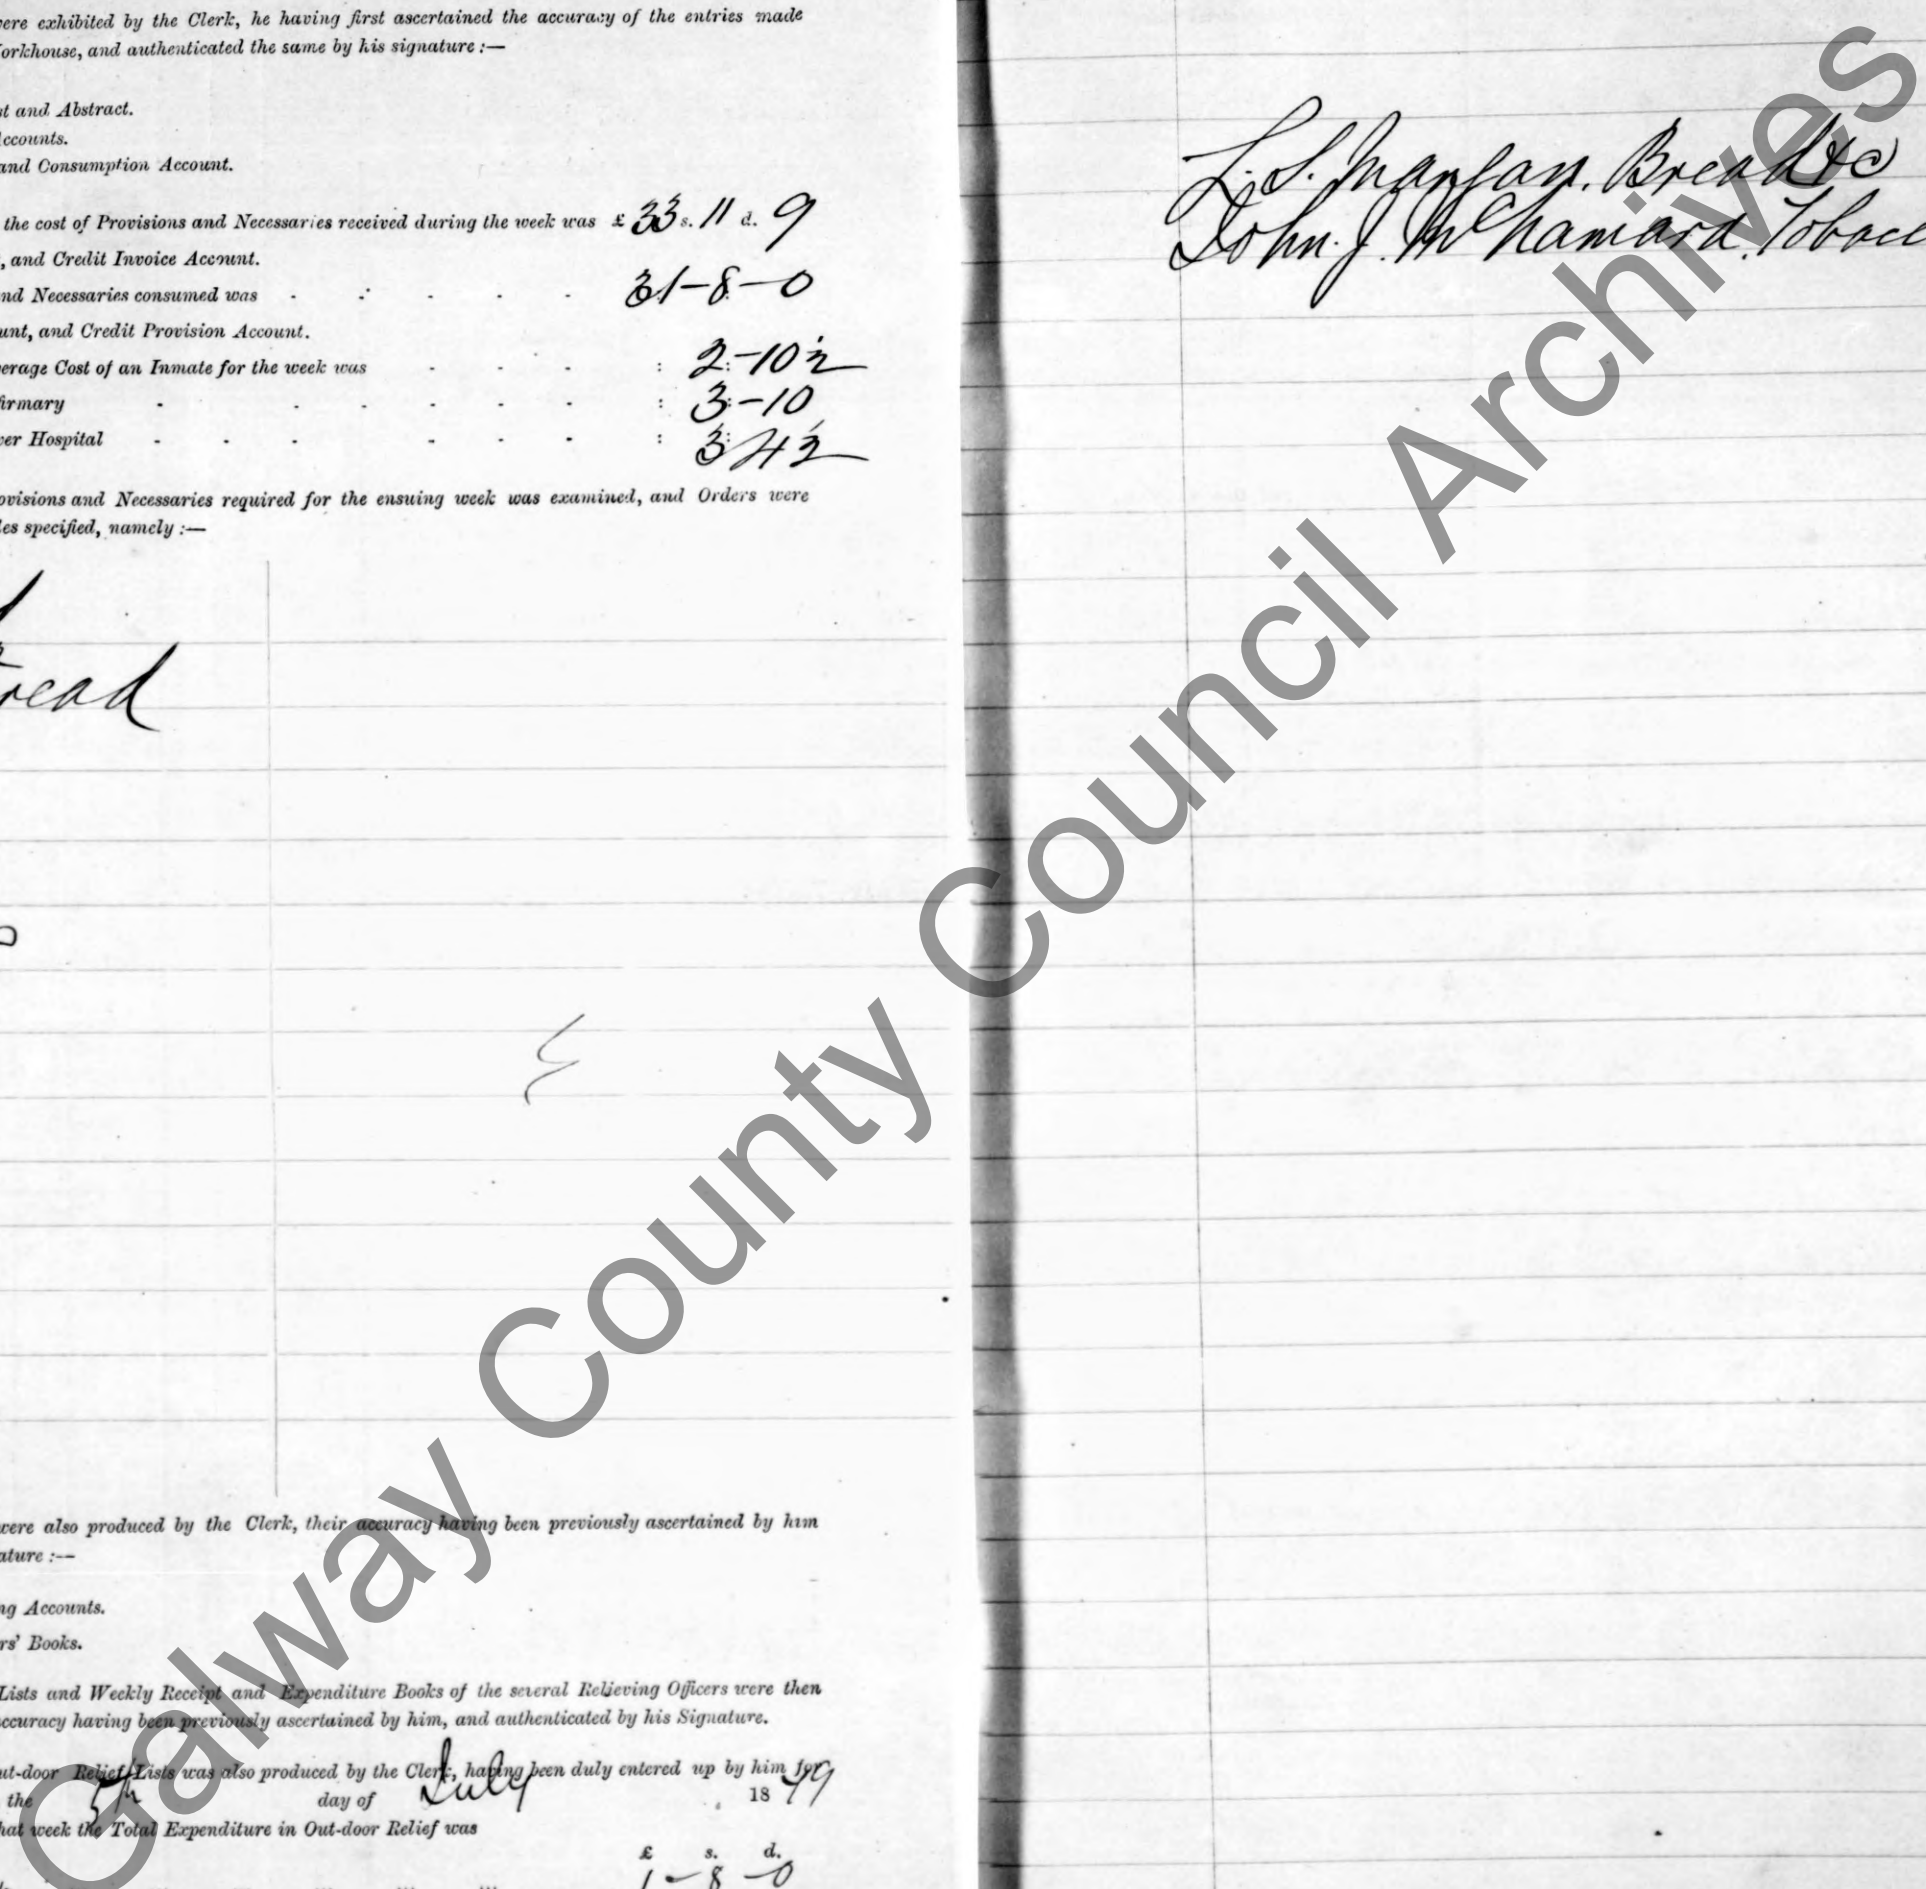 were exhibited by the Clerk, he having first ascertained the accuracy of the entries made
Workhouse, and authenticated the same by his signature :—
st and Abstract.
Accounts.
and Consumption Account.
the cost of Provisions and Necessaries received during the week was £ 33 s. 11 d. 9
, and Credit Invoice Account.
nd Necessaries consumed was 31-8-0
unt, and Credit Provision Account.
verage Cost of an Inmate for the week was : 2-10½
firmary : 3-10
ver Hospital : 3 4½
ovisions and Necessaries required for the ensuing week was examined, and Orders were
les specified, namely :—
read
were also produced by the Clerk, their accuracy having been previously ascertained by him
ature :—
ng Accounts.
rs' Books.
Lists and Weekly Receipt and Expenditure Books of the several Relieving Officers were then
accuracy having been previously ascertained by him, and authenticated by his Signature.
ut-door Relief Lists was also produced by the Clerk, having been duly entered up by him for
the 5th day of July 1879
hat week the Total Expenditure in Out-door Relief was
£ s. d.
1-8-0
L. S. Mangan. Bread &c
John. J. McNamara. Tobacc
Galway County Council Archives